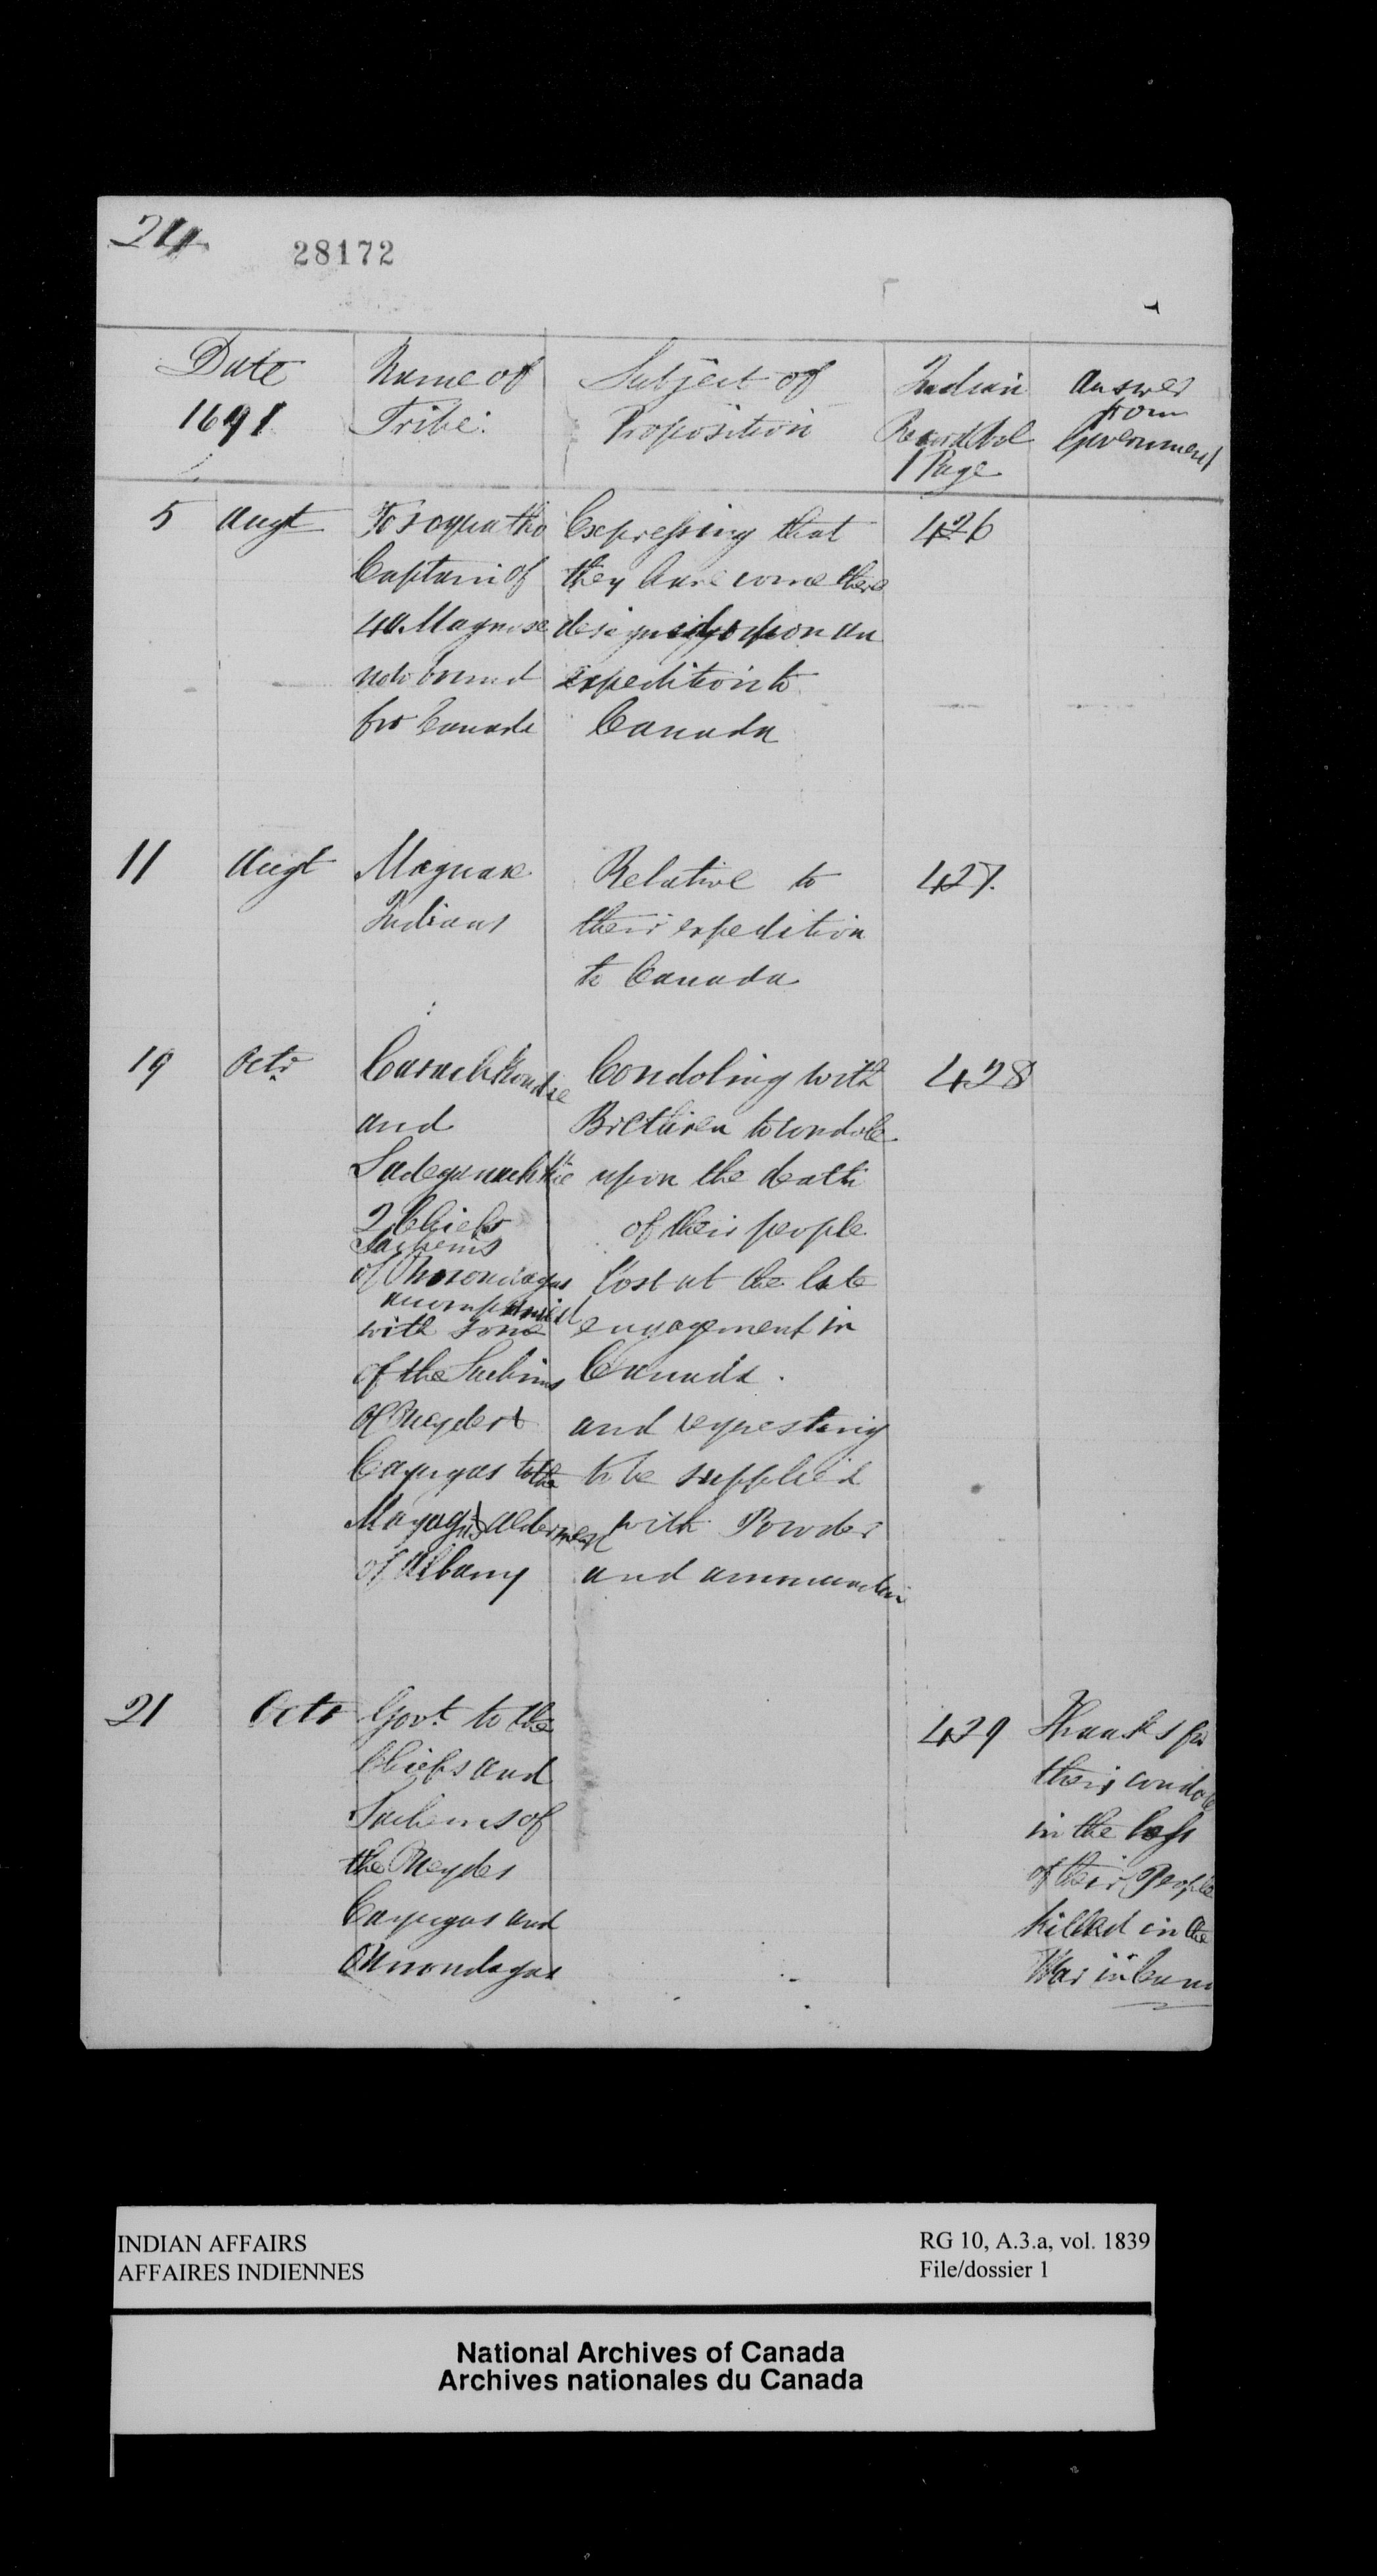 24
28172
Date
1691
Name of
Tribe
Subject of
Proposition
Indian
Record Vol
1 Page
Answer
from
Government
5 Augt
Captain of
40 Maquase
now bound
for Canada
Expressing that
they have come there
upon an
expedition to
Canada
426
11 Augt
Maquase
Indians
Relative to
their expedition
to Canada
427
19 Octr
and
2 Chiefs
Sachems
of Onnondagas
accompanied
with some
of the Sachims
of Oneydes &
Cayugas to the
Aldermen
of Albany
Condoling with
Brethren to condole
upon the death
of their people
lost at the late
engagement in
Canada.
and requesting
to be supplied
with Powder
and
428
21 Octr
Govt. to the
Chiefs and
Sachems of
the Oneydes
Cayugas and
Onnondagas
429
Thanks for
their condole
in the loss
of their People
killed in the
War in Cana
INDIAN AFFAIRS
AFFAIRES INDIENNES
RG 10, A.3.a, vol. 1839
File/dossier 1
National Archives of Canada
Archives nationales du Canada